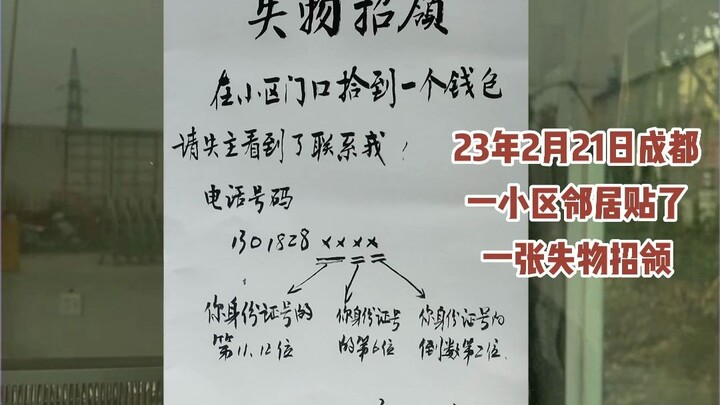 失物招领
在小区门口拾到一个钱包
请失主看到了联系我！
电话号码
1301828××××
你身份证号的
第11、12位
你身份证号
的第6位
你身份证号的
倒数第2位.
23年2月21日成都
一小区邻居贴了
一张失物招领